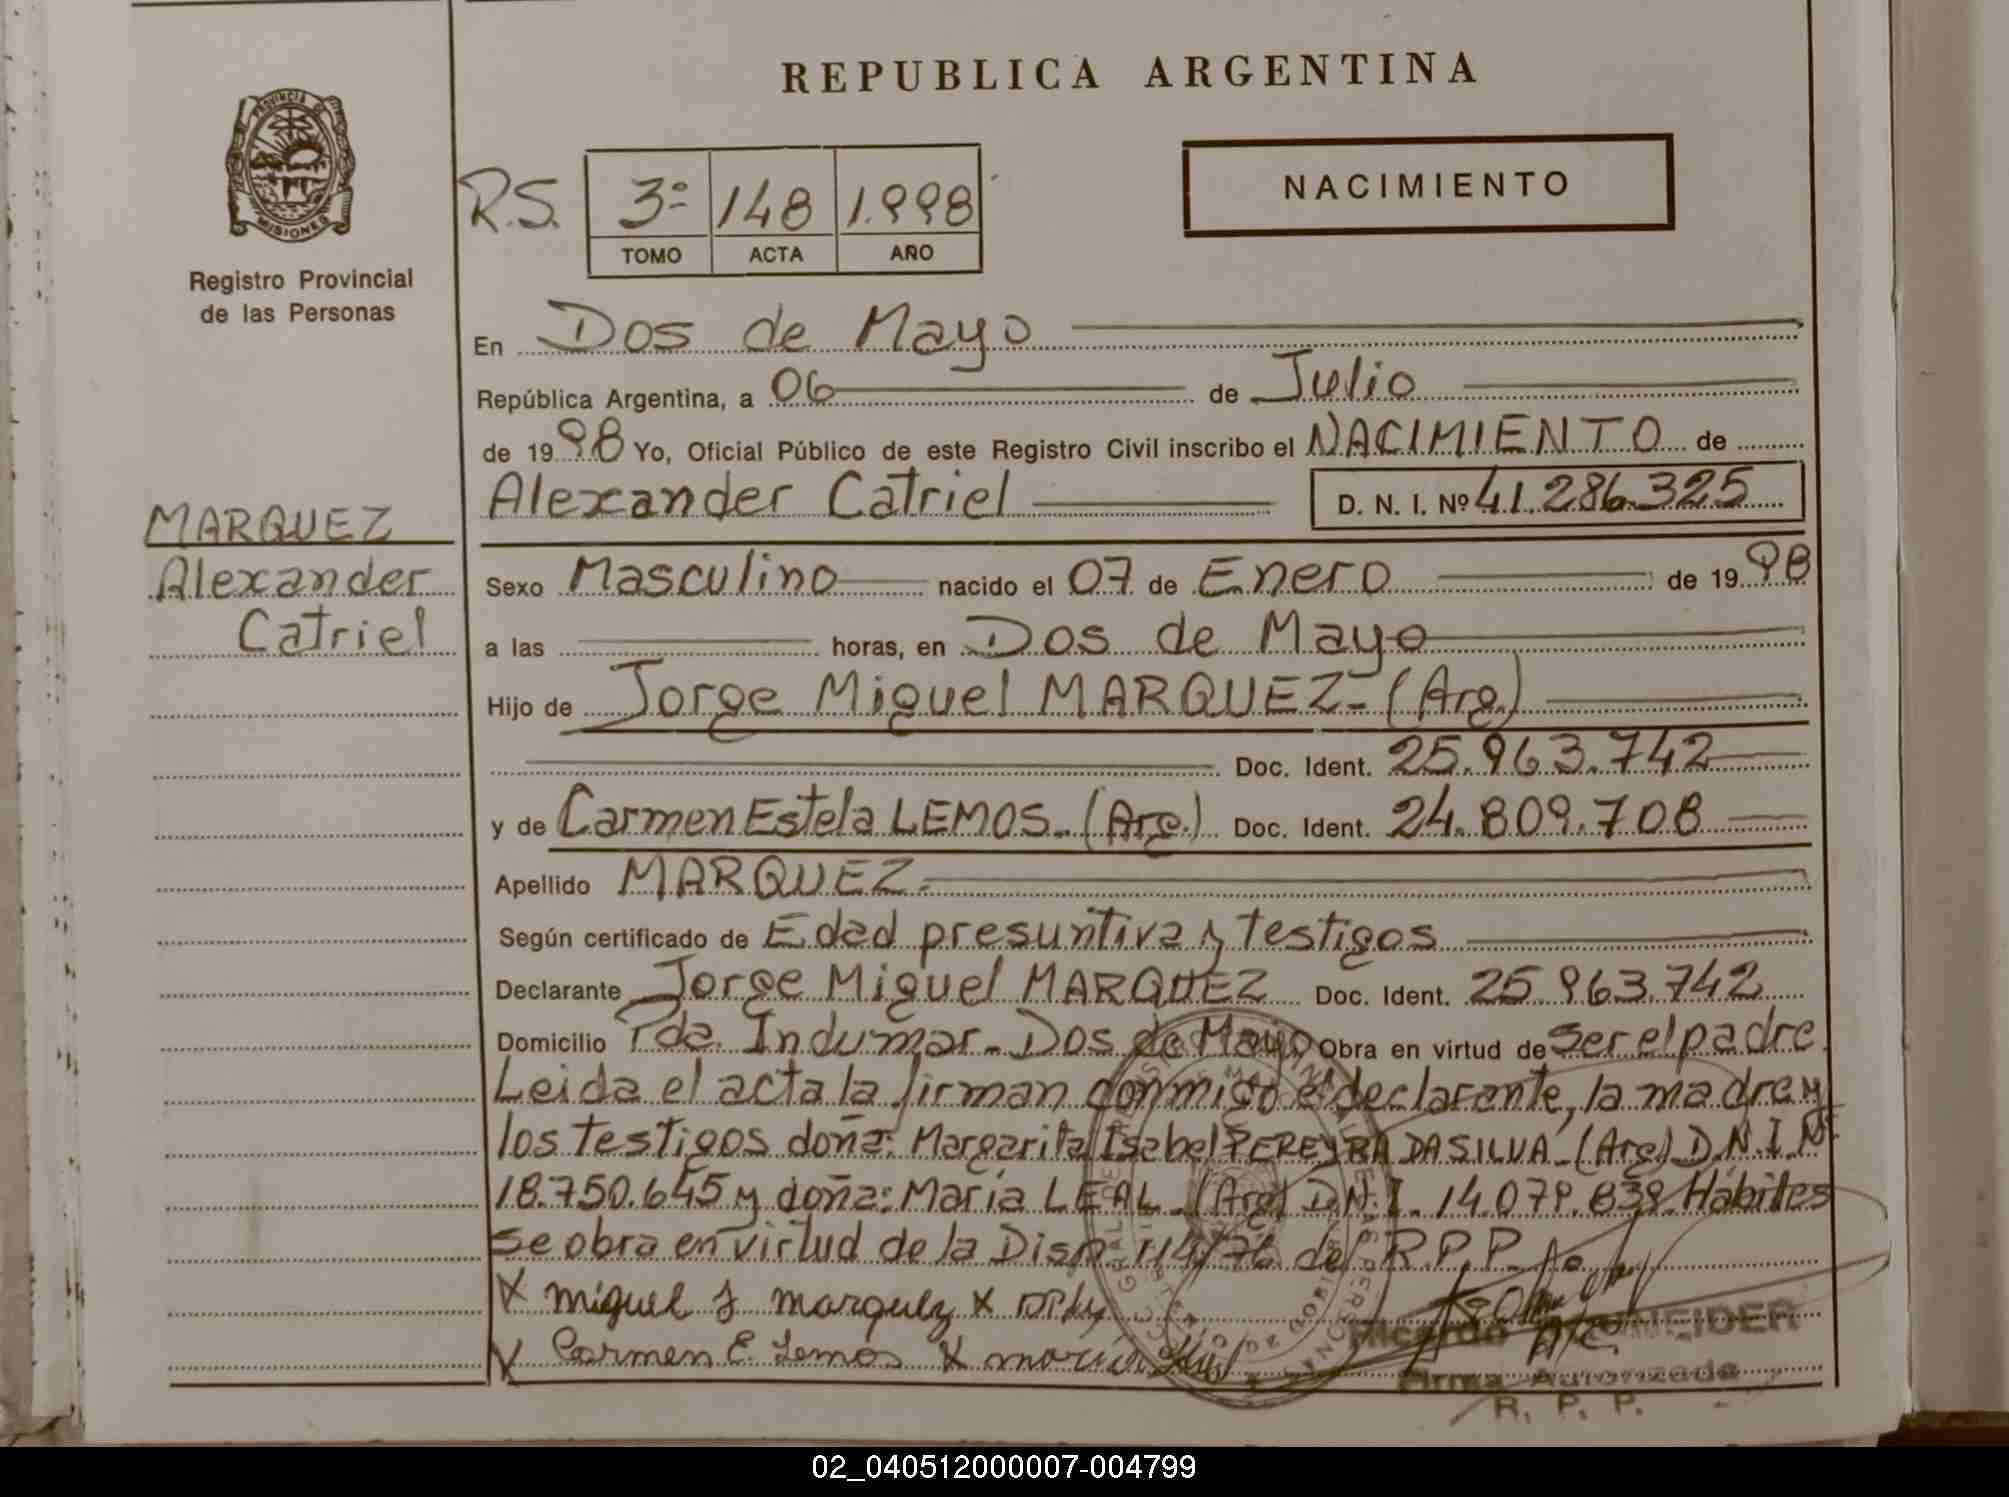 REPUBLICA ARGENTINA
PROVINCIA DE MISIONES
Registro Provincial
de las Personas
R.S. 3º 148 1.998
TOMO ACTA AÑO
NACIMIENTO
En Dos de Mayo
República Argentina, a 06 de Julio
de 1998 Yo, Oficial Público de este Registro Civil inscribo el NACIMIENTO de
Alexander Catriel D. N. I. Nº 41.286.325
MARQUEZ
Alexander
Catriel
Sexo Masculino nacido el 07 de Enero de 1998
a las horas, en Dos de Mayo
Hijo de Jorge Miguel MARQUEZ- (Arg.)
Doc. Ident. 25.963.742
y de Carmen Estela LEMOS.- (Arg.) Doc. Ident. 24.809.708
Apellido MARQUEZ.
Según certificado de Edad presuntiva y testigos
Declarante Jorge Miguel MARQUEZ Doc. Ident. 25.963.742
Domicilio Pda. Indumar - Dos de Mayo Obra en virtud de ser el padre.
Leida el acta la firman conmigo el declarante, la madre y
los testigos doña: Margarita Isabel PEREYRA DA SILVA - (Arg) D.N.I. Nº
18.750.645 y doña: María LEAL - (Arg) D.N.I. 14.079.839. Hábiles
se obra en virtud de la Disp. 114/76 del R.P.P.
X miguel J marquez X
X Carmen E. Lemos X maria
Ricardo SCHNEIDER
Firma Autorizada
R. P. P.
02_040512000007-004799